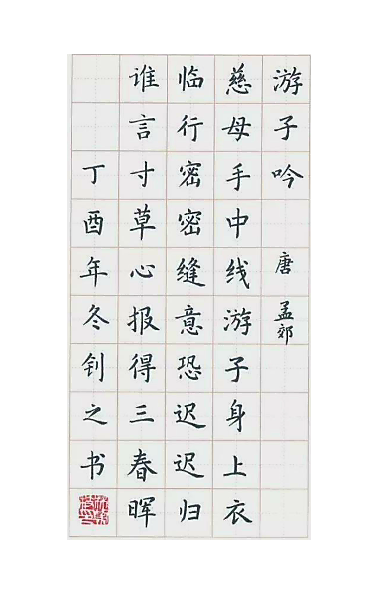 游子吟 唐 孟郊
慈母手中线游子身上衣
临行密密缝意恐迟迟归
谁言寸草心报得三春晖
丁酉年冬钊之书